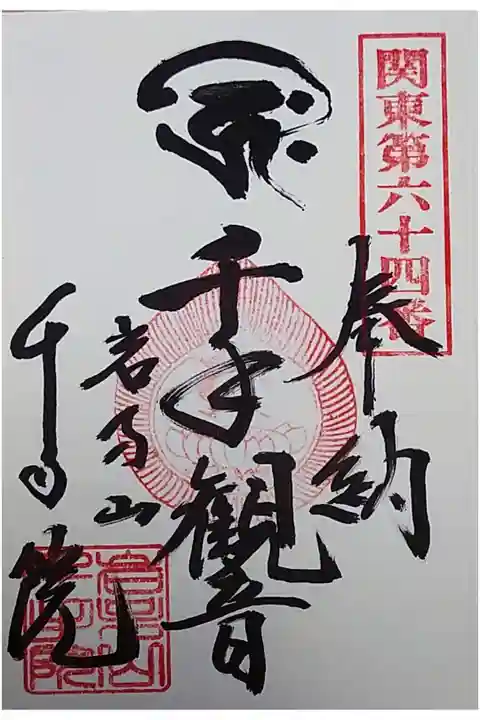 関東第六十四番
奉納
千手觀音
山
千手院